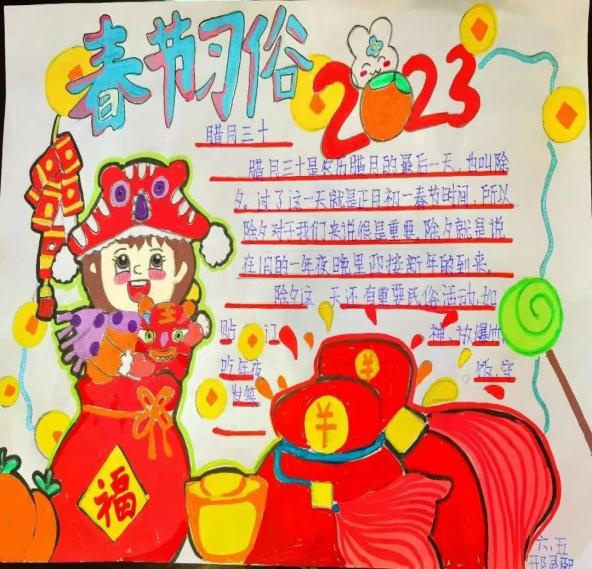 春节习俗
2023
腊月三十
腊月三十是农历腊月的最后一天,也叫除
夕。过了这一天就是正月初一春节时间,所以
除夕对于我们来说很是重要,除夕就是说
在旧的一年夜晚里迎接新年的到来。
除夕这一天还有重要民俗活动,如
贴 门 神、放爆竹
吃年夜 饭、守
岁等
福
六、五